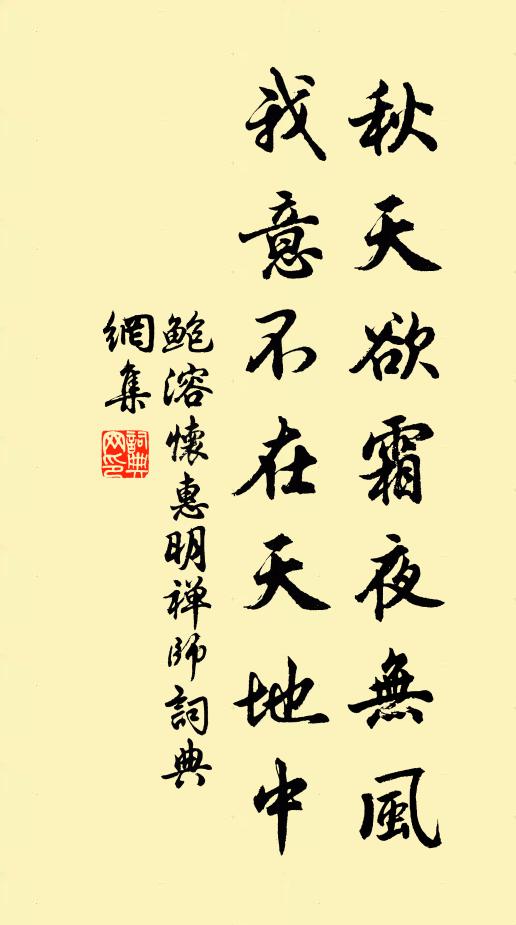 秋天欲霜夜無風
我意不在天地中
鲍溶懷惠明禅師詞典
網集
詞典網印